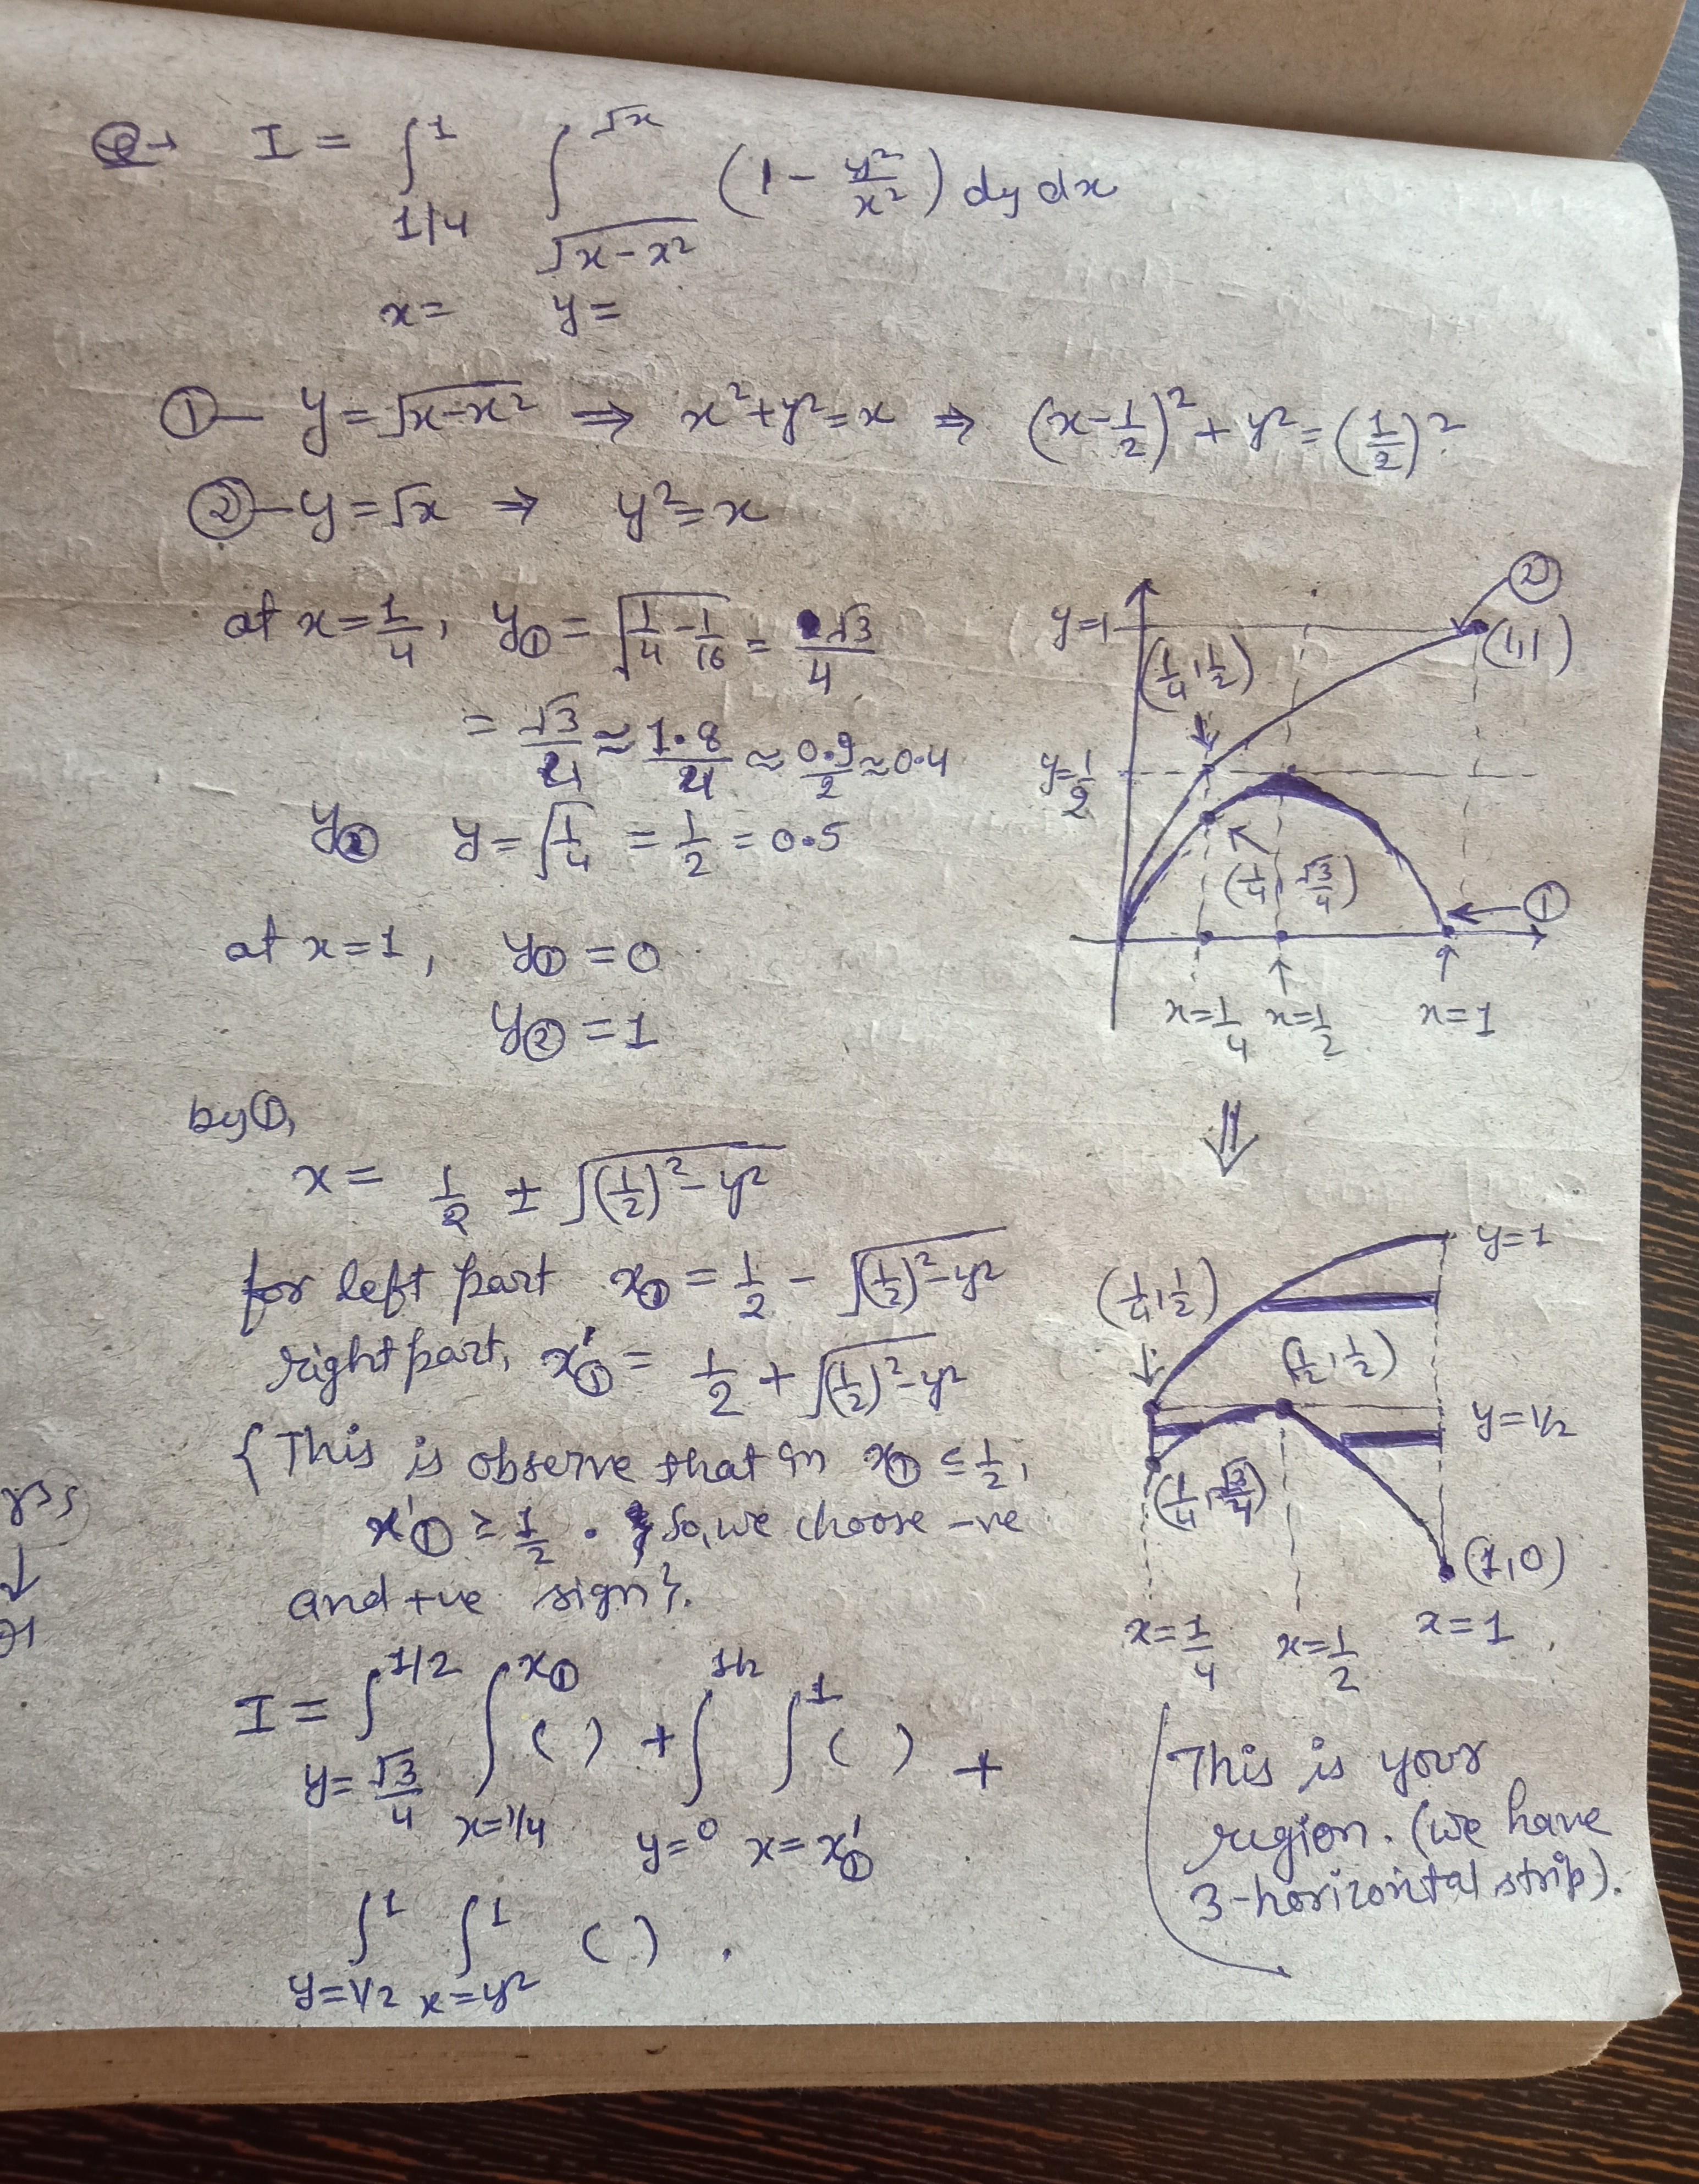 Q→ I = ∫_{1/4}^{1} ∫_{√(x-x²)}^{√x} (1 - y²/x²) dy dx
x= y=
① — y = √(x-x²) ⇒ x²+y²=x ⇒ (x-1/2)² + y² = (1/2)²
② — y = √x ⇒ y² = x
at x = 1/4, y① = √(1/4 - 1/16) = √3/4
= √3/4 ≈ 1.8/4 ≈ 0.9/2 ≈ 0.4
y② y = √(1/4) = 1/2 = 0.5
at x = 1, y① = 0
y② = 1
②
y=1
(1/4, 1/2)
(1,1)
y=1/2
(1/4, √3/4)
①
x=1/4 x=1/2 x=1
⇓
by ①,
x = 1/2 ± √((1/2)² - y²)
for left part x① = 1/2 - √((1/2)² - y²)
right part, x'① = 1/2 + √((1/2)² - y²)
{ This is observe that in x① ≤ 1/2,
x'① ≥ 1/2 . So, we choose -ve
and +ve sign}.
y=1
(1/4, 1/2)
(1/2, 1/2)
y=1/2
(1/4, √3/4)
(1,0)
x=1/4 x=1/2 x=1
I = ∫_{y=√3/4}^{1/2} ∫_{x=1/4}^{x①} ( ) + ∫_{y=0}^{1/2} ∫_{x=x'①}^{1} ( ) +
∫_{y=1/2}^{1} ∫_{x=y²}^{1} ( ) .
This is your
region. (we have
3-horizontal strip).